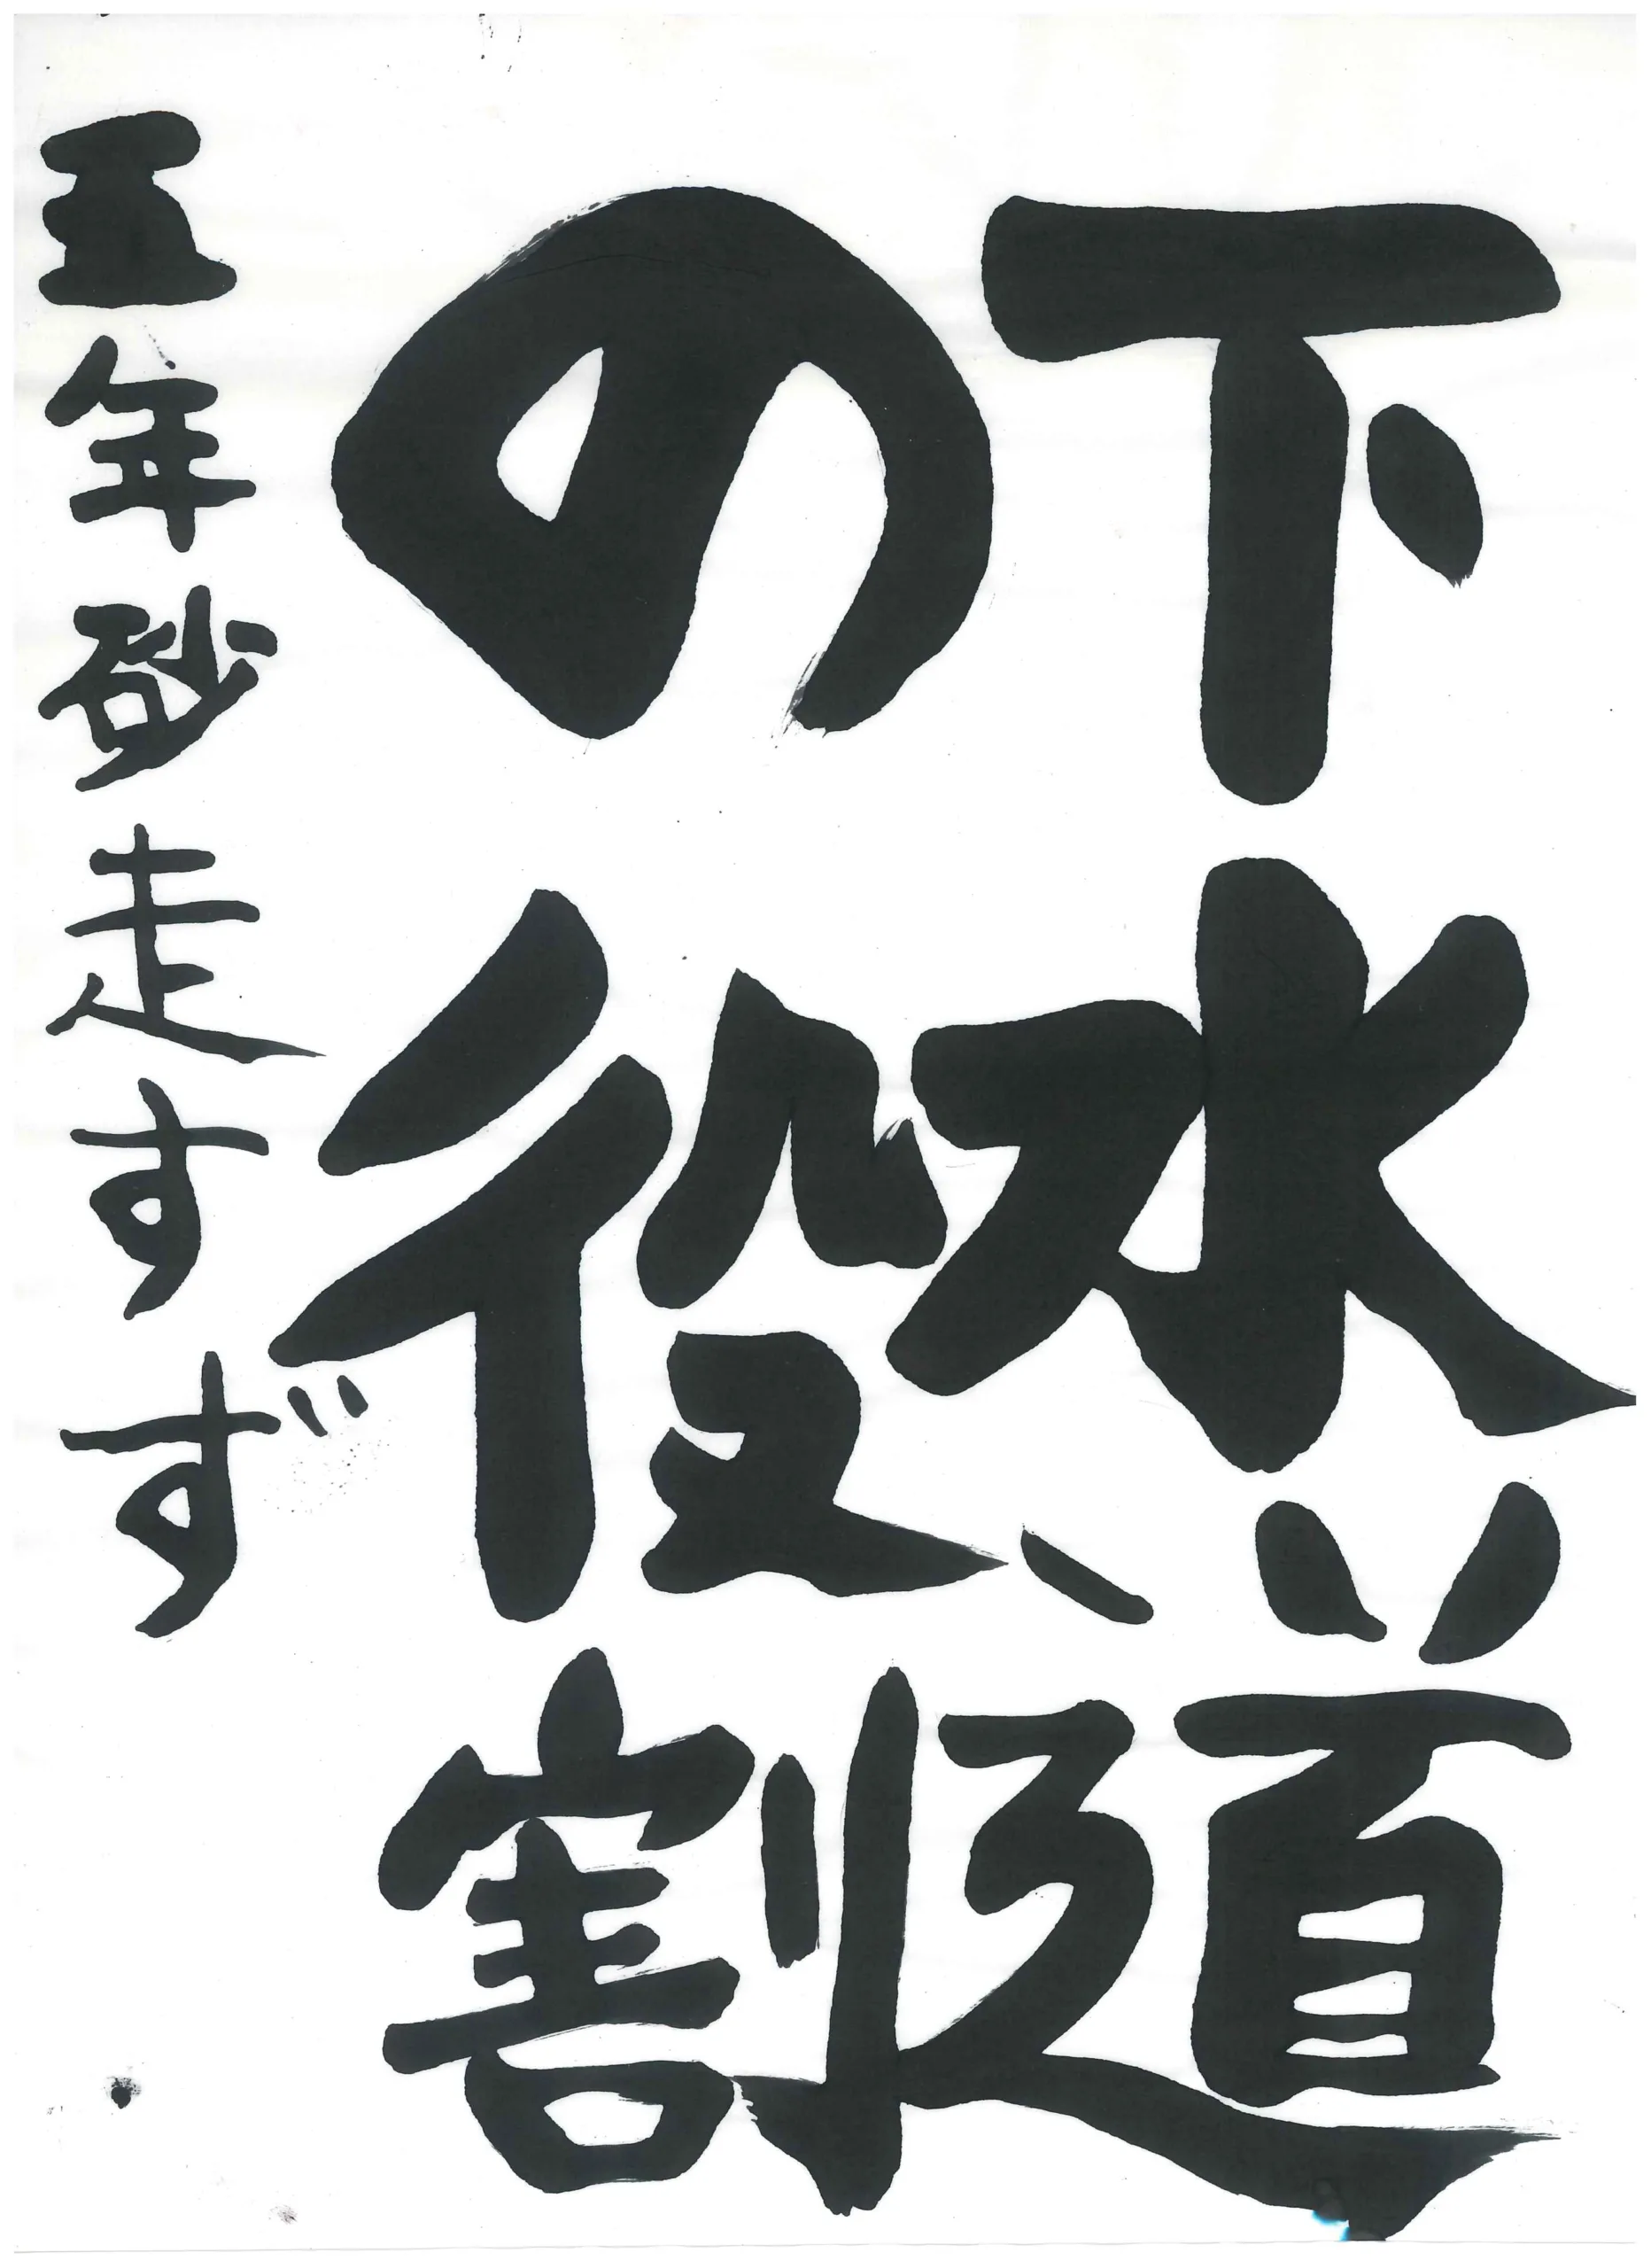 下水道
の役割
五年砂走すすず